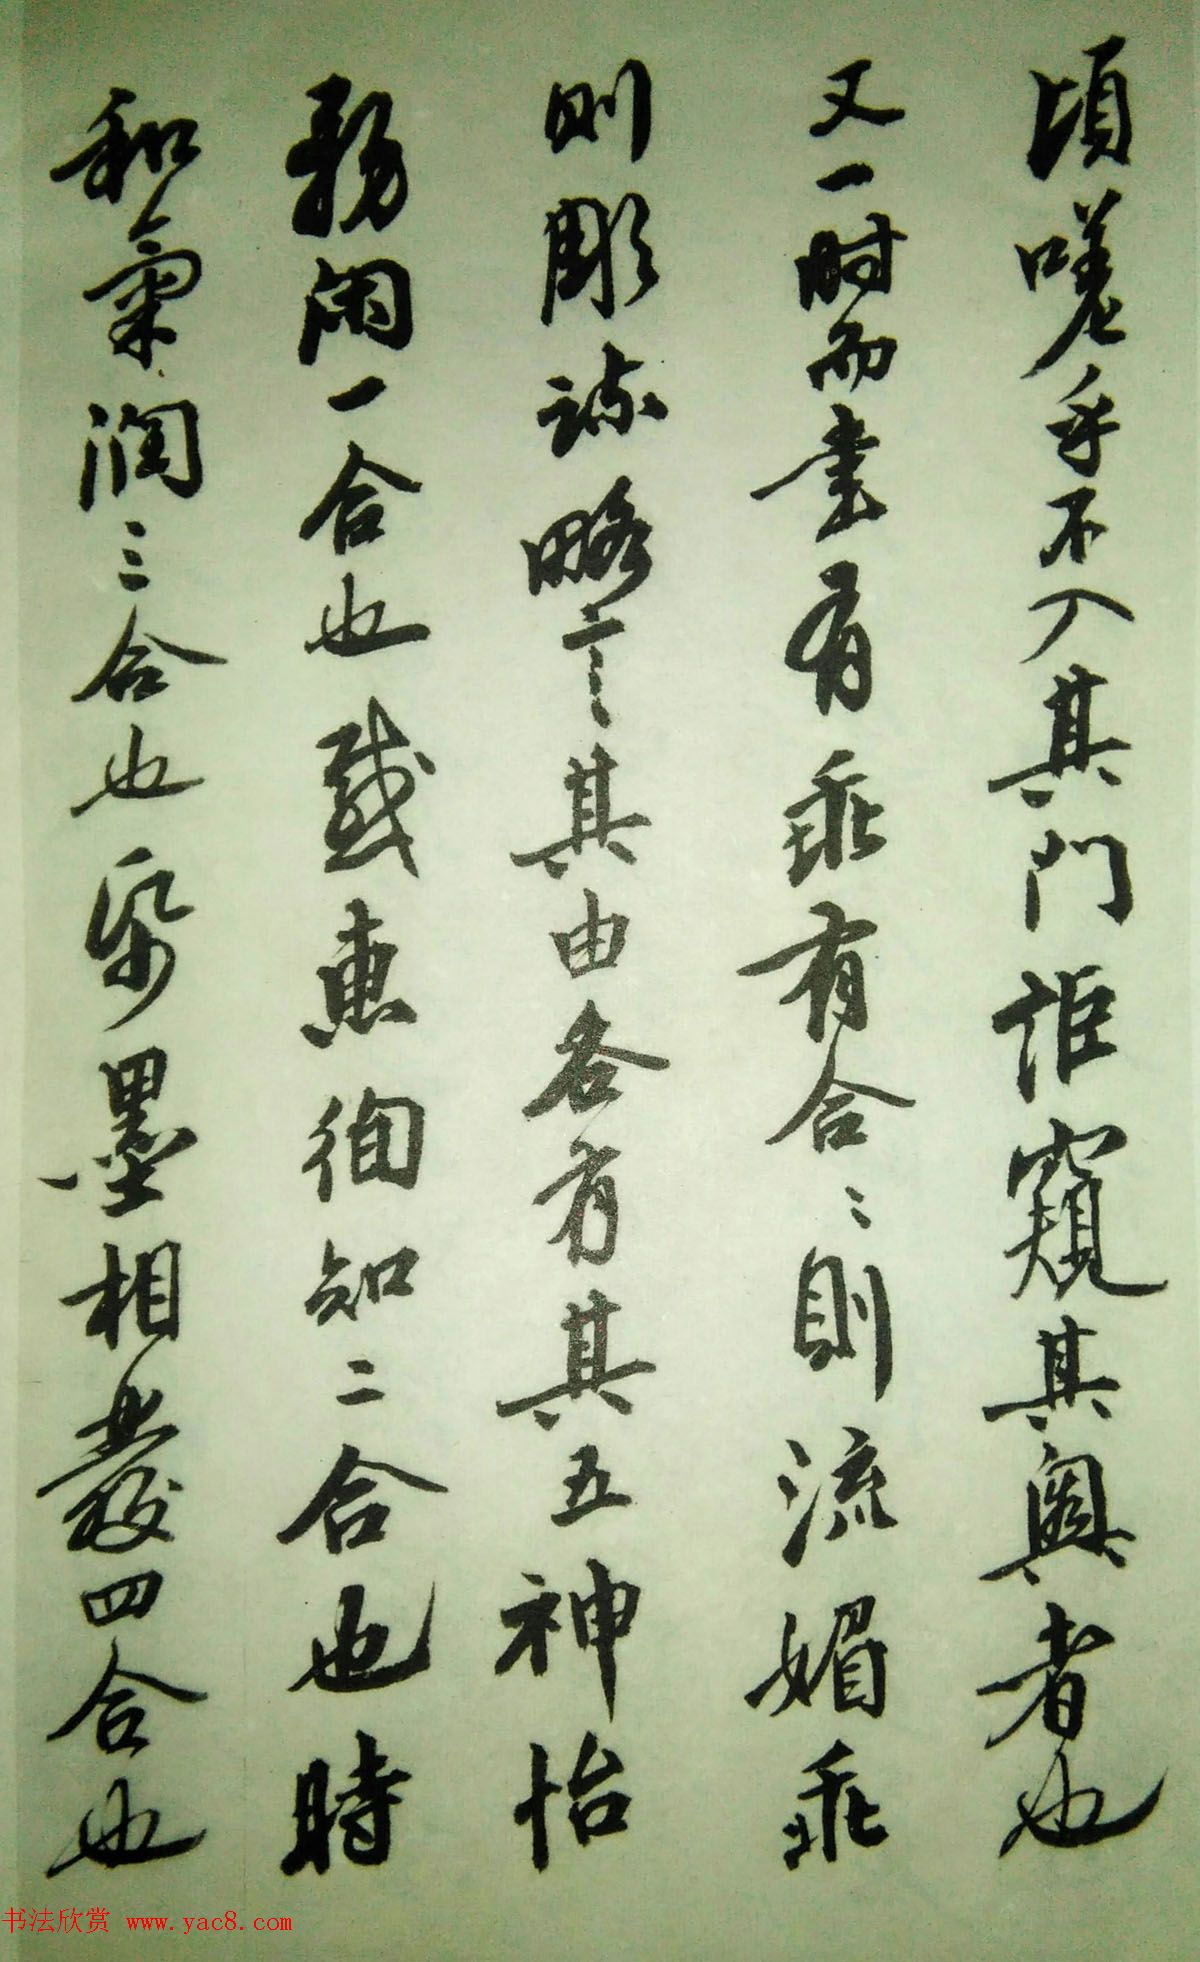 頃嗟乎不入其門詎窺其奧者也
又一时而書有乖有合合則流媚乖
則彫疏略言其由各有其五神怡
務闲一合也感惠徇知二合也時
和氣润三合也紙墨相發四合也
书法欣赏 www.yac8.com